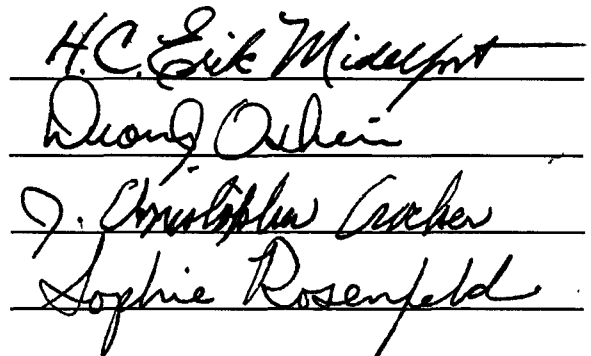 H.C. Erik Midelfort
Duane Osheim
J. Christopher Crocker
Sophie Rosenfeld